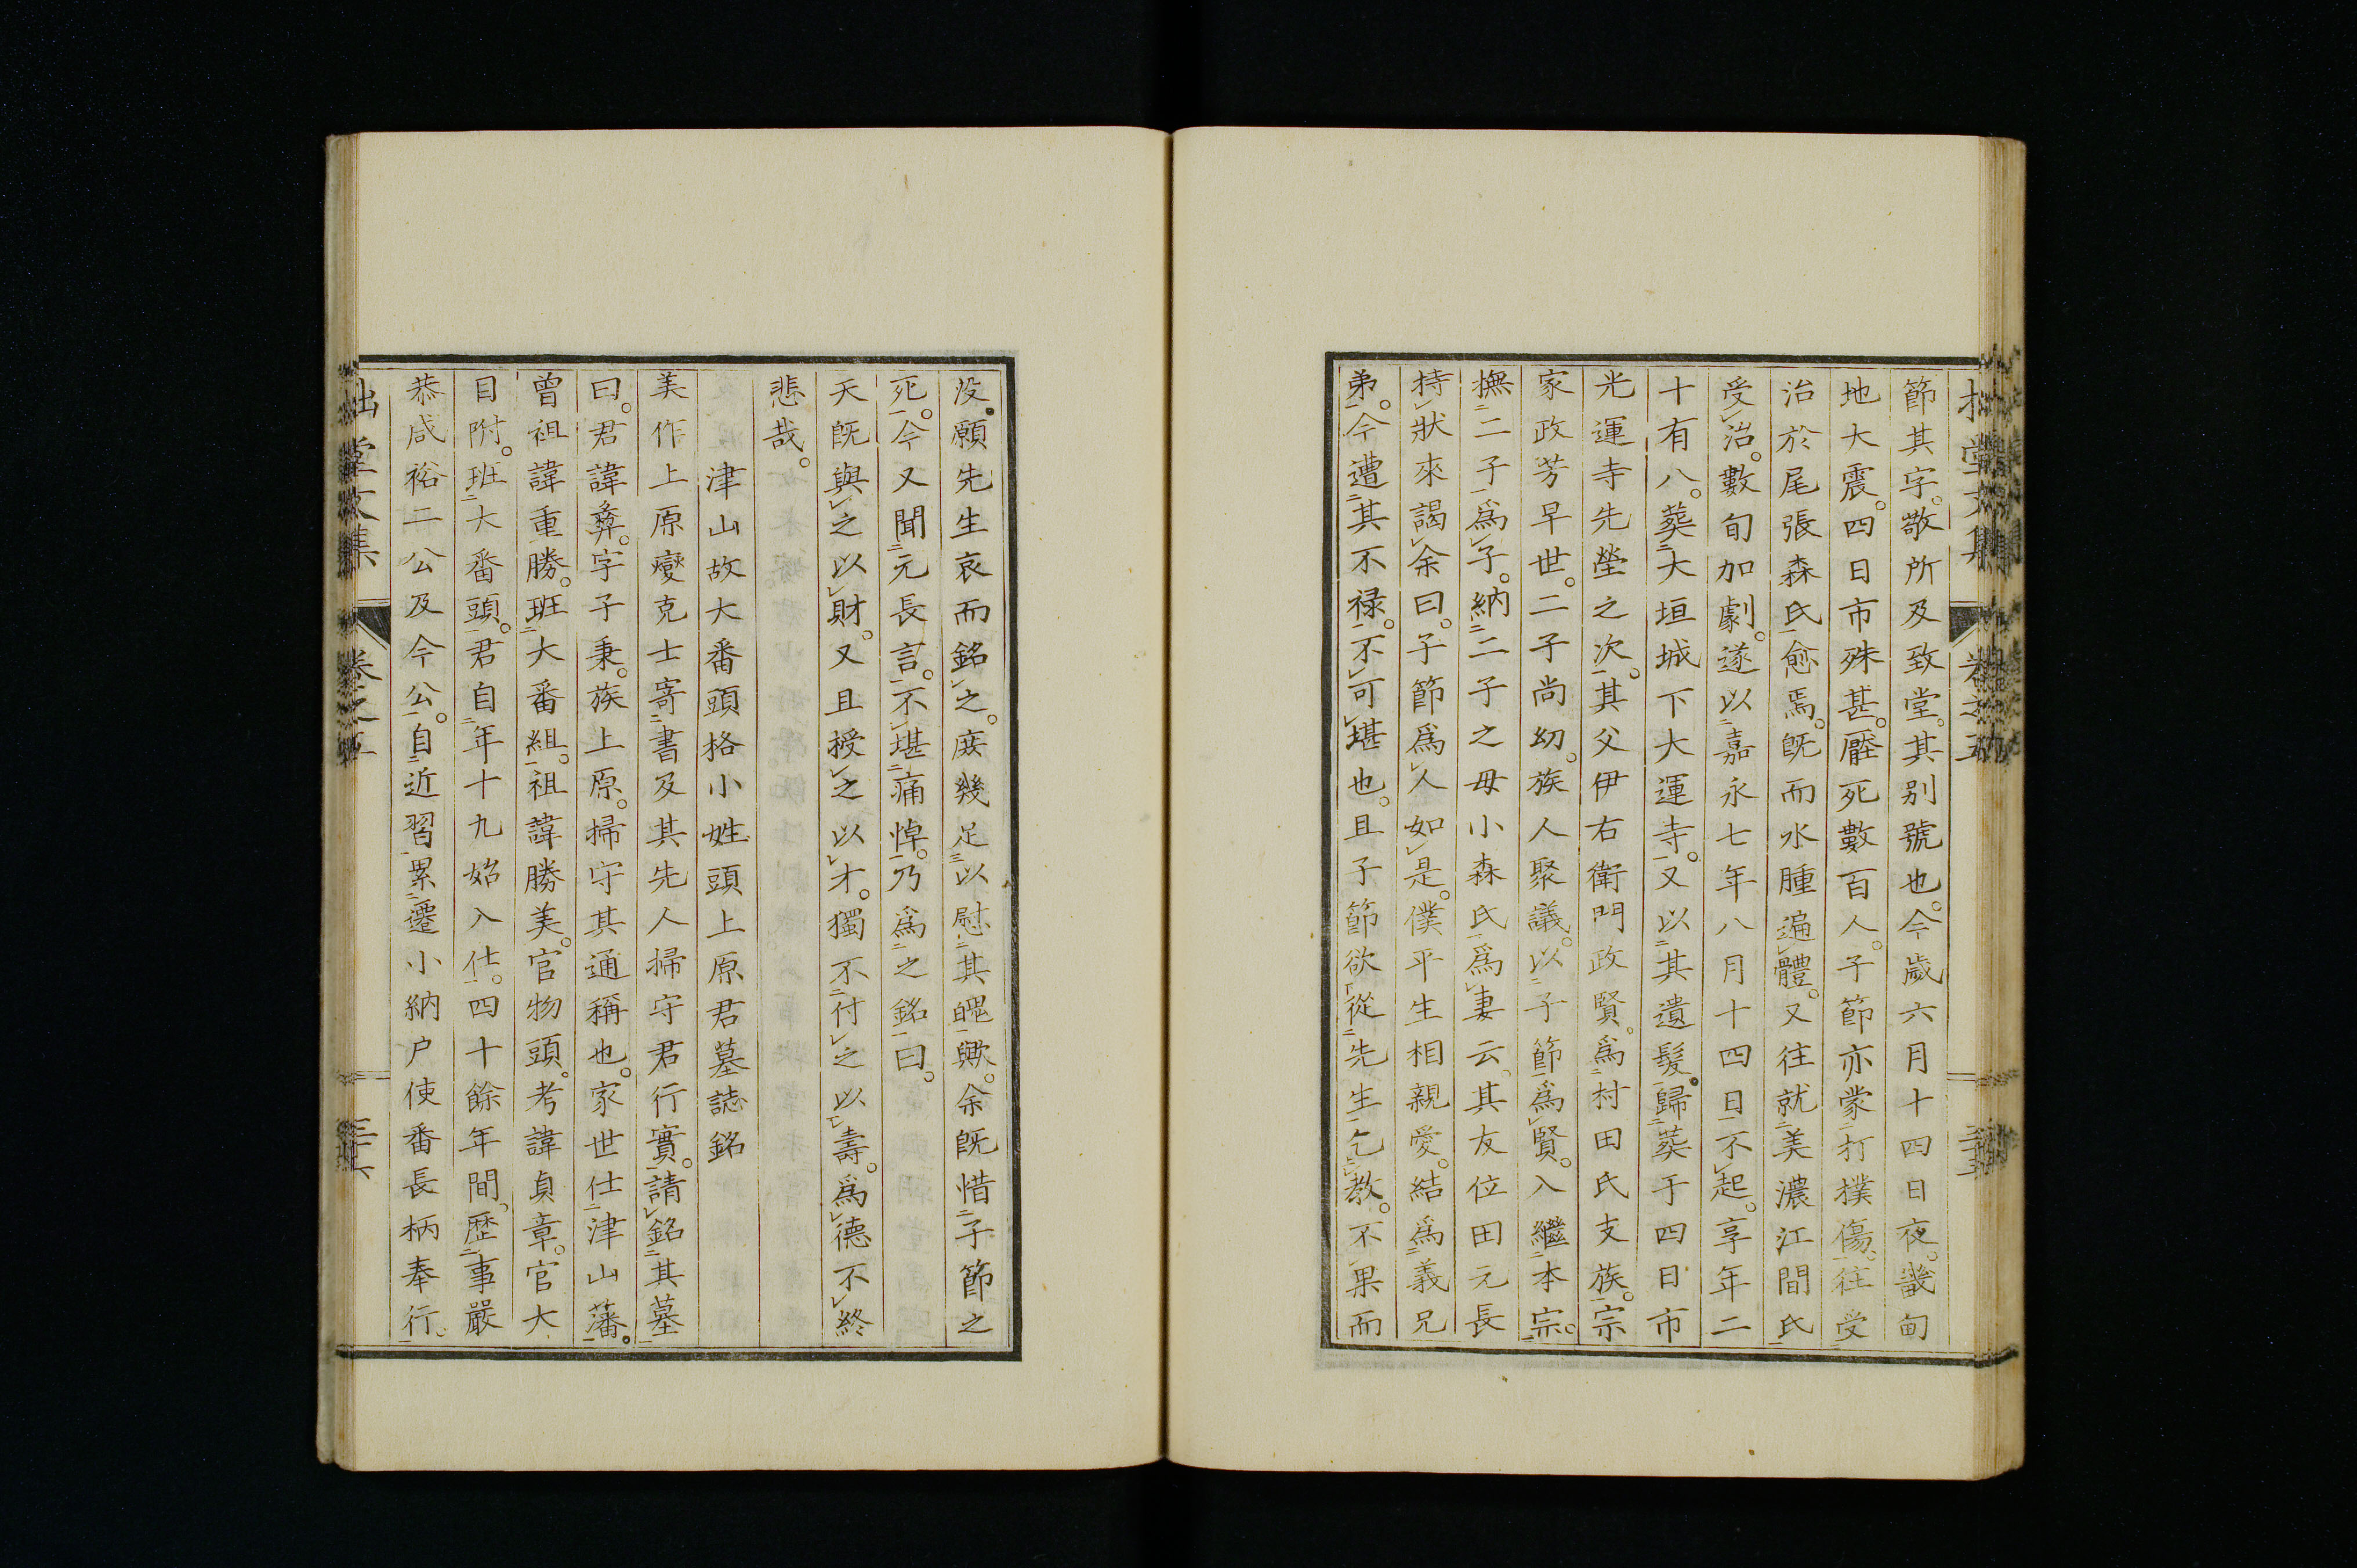 節其字。敬所及致堂。其别號也。今歲六月十四日夜。畿甸
地大震。四日市殊甚。壓死數百人。子節亦蒙打撲傷。往受
治於尾張森氏愈焉。既而水腫遍體。又往就美濃江間氏
受治。數旬加劇。遂以嘉永七年八月十四日不起。享年二
十有八。葬大垣城下大運寺。又以其遺髮。歸葬于四日市
光運寺先塋之次。其父伊右衛門政賢。為村田氏支族。宗
家政芳早世。二子尚幼。族人聚議。以子節為賢。入繼本宗。
撫二子為子。納二子之母小森氏為妻云。其友位田元長
持狀來謁余曰。子節為人如是。僕平生相親愛。結為義兄
弟。今遭其不禄。不可堪也。且子節欲從先生乞教。不果而
没。願先生哀而銘之。庶幾足以慰其魄歟。余既惜子節之
死。今又聞元長言。不堪痛悼。乃為之銘曰。
天既與之以財。又且授之以才。獨不付之以壽。為德不終
悲哉。
津山故大番頭格小姓頭上原君墓誌銘
美作上原燮克士寄書及其先人掃守君行實。請銘其墓
曰。君諱彝。字子秉。族上原。掃守其通稱也。家世仕津山藩。
曾祖諱重勝。班大番組。祖諱勝美。官物頭。考諱貞章。官大
目附。班大番頭。君自年十九始入仕。四十餘年間。歷事嚴
恭成裕二公及今公。自近習累遷小納户使番長柄奉行。
拙堂文集 卷之五